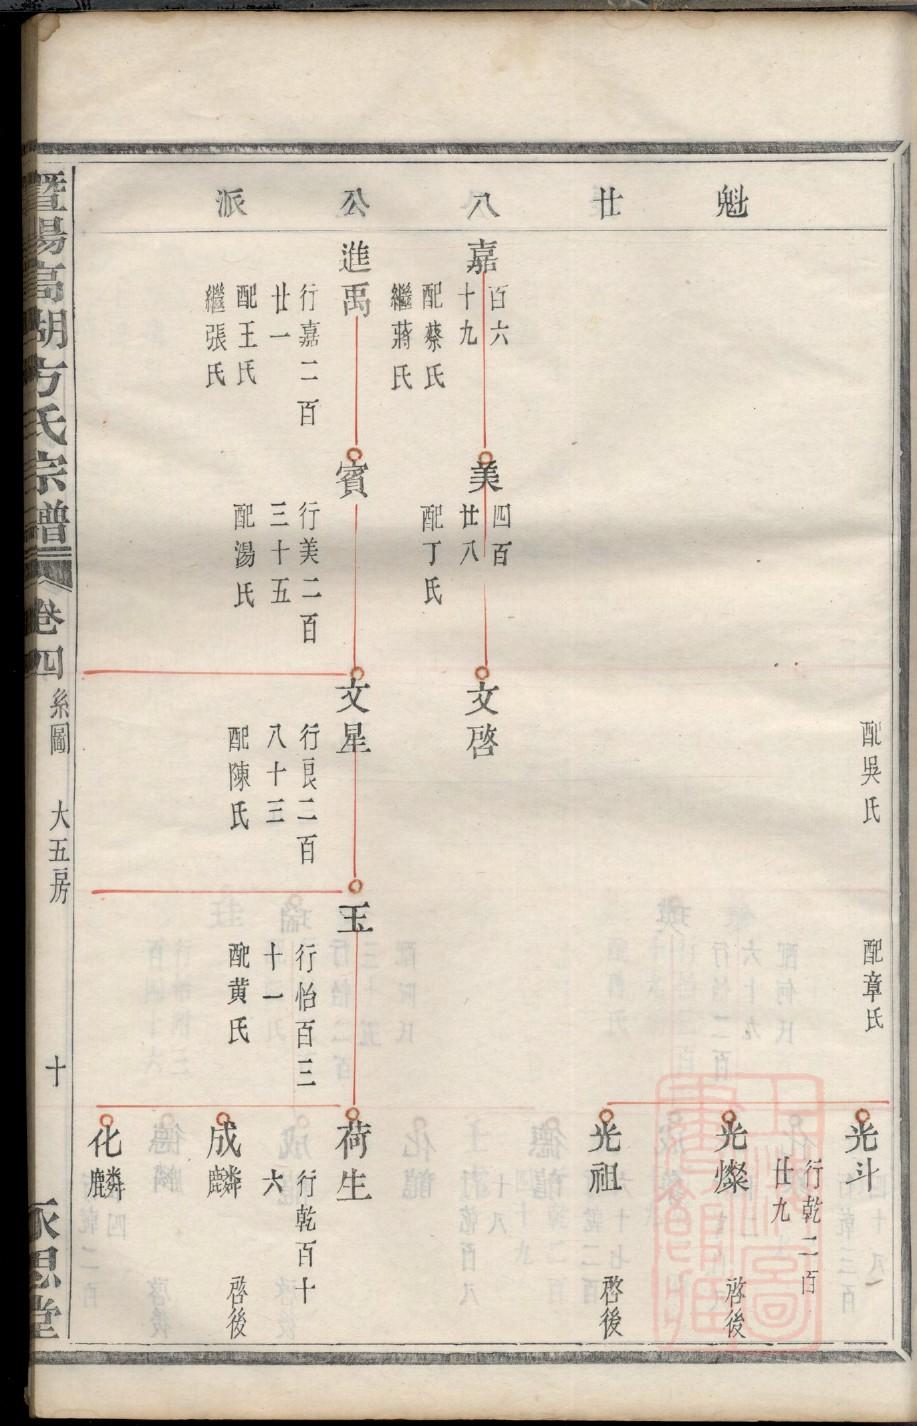 魁廿八公派
配吳氏
配章氏
光斗
光燦
行乾二百
廿九
啓後
光祖
啓後
嘉
百六
十九
配蔡氏
繼蔣氏
美
四百
廿八
配丁氏
文啓
進禹
行嘉二百
廿一
配王氏
繼張氏
賓
行美二百
三十五
配湯氏
文星
行良二百
八十三
配陳氏
玉
行怡百三
十一
配黃氏
荷生
行乾百十
六
成麟
啓後
化麟
暨陽高湖方氏宗譜
卷四
糸圖
大五房
十
永思堂